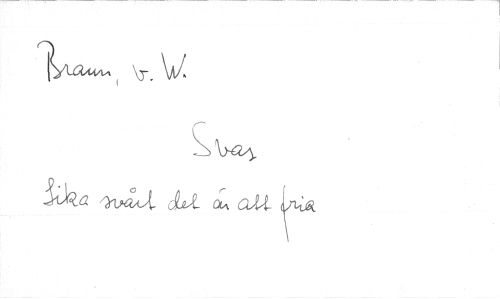 Braun, v. W.
Svas
Lika svårt det är att fria